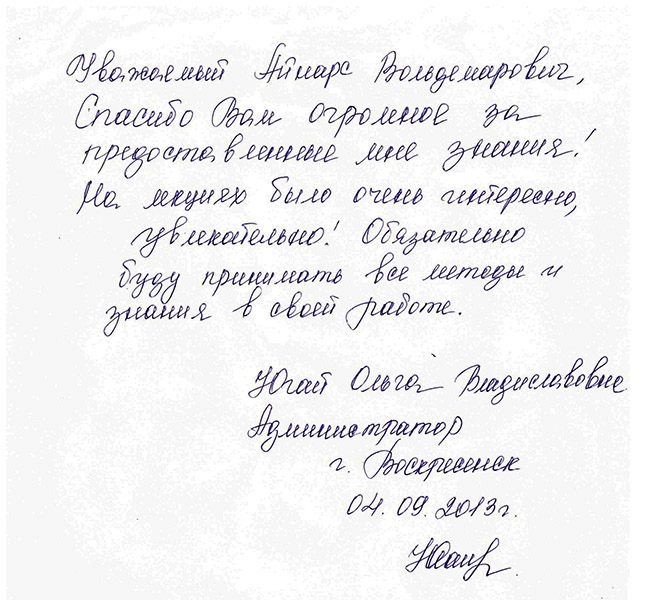 Уважаемый Айнарс Вольдемарович,
Спасибо Вам огромное за
предоставленные мне знания!
На лекциях было очень интересно,
увлекательно! Обязательно
буду принимать все методы и
знания в своей работе.
Югай Ольга Владиславовна
Администратор
г. Воскресенск
04.09.2013г.